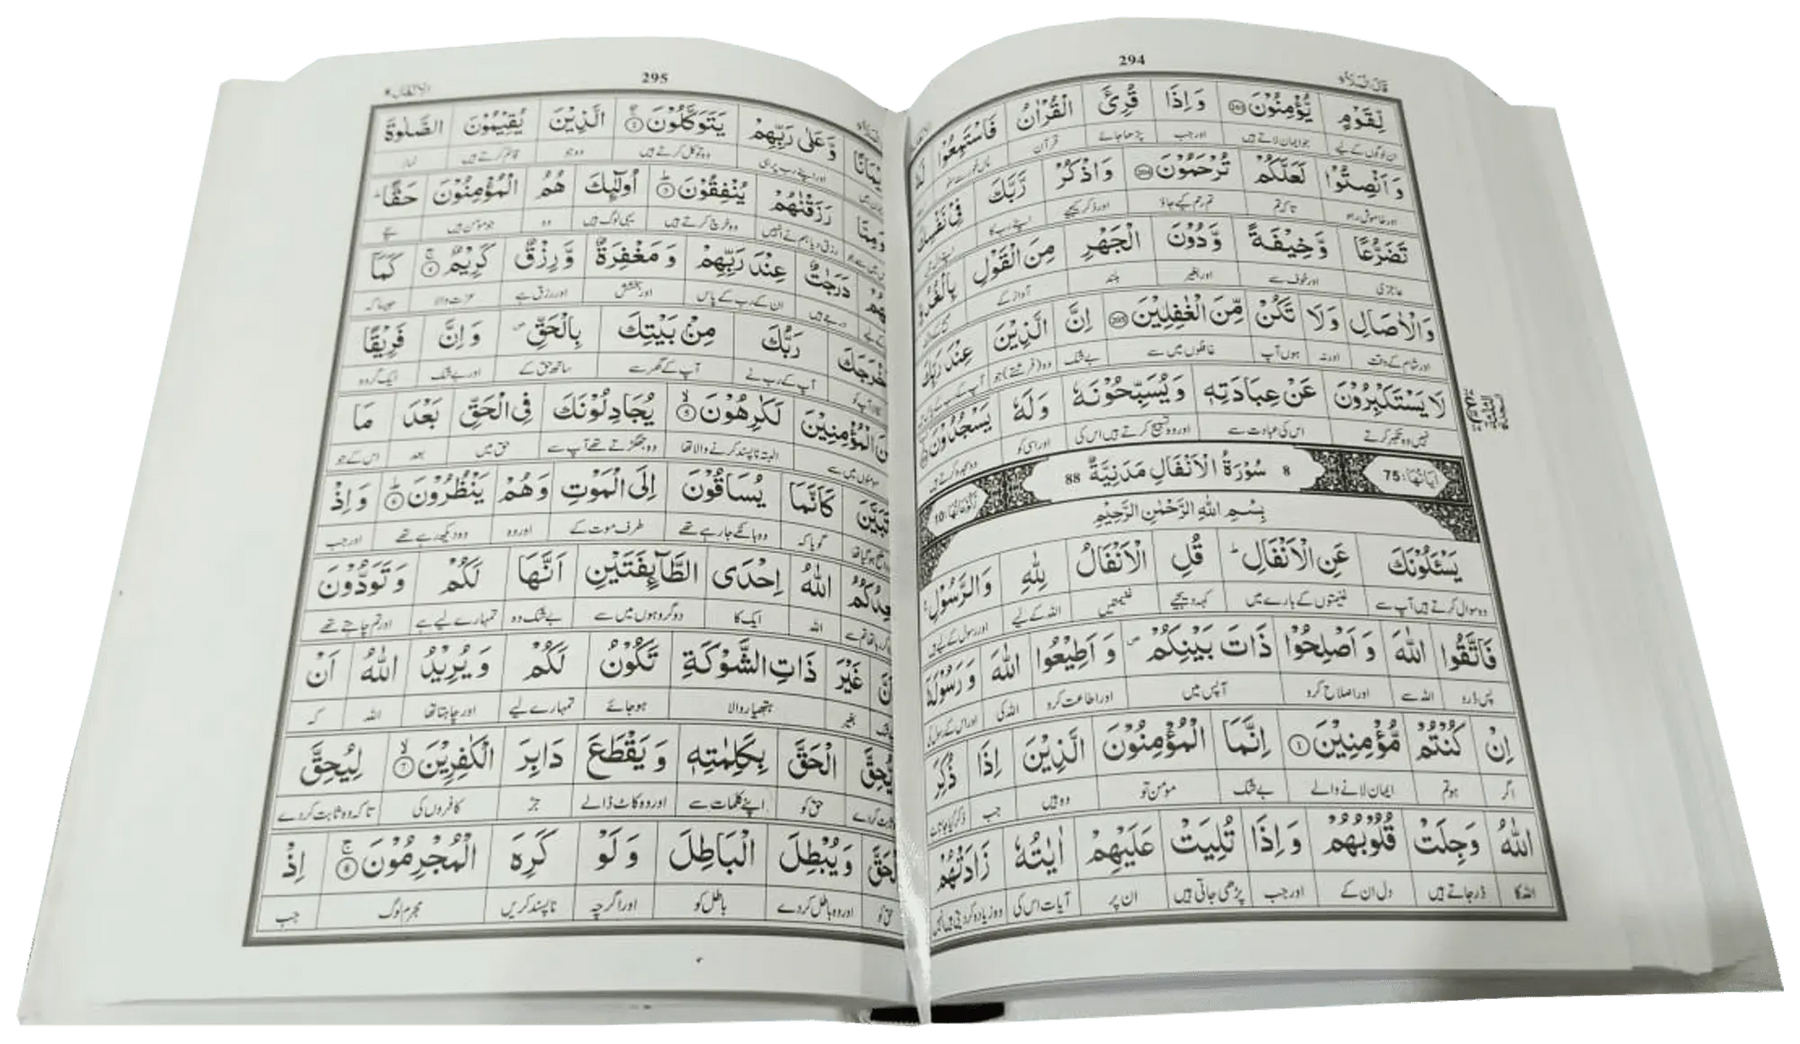 294
قال الملا ۹
لِقَوْمٍ يُّؤْمِنُوْنَ 203 وَ اِذَا قُرِئَ الْقُرْاٰنُ فَاسْتَمِعُوْا
ان لوگوں کے لیے جو ایمان لاتے ہیں اور جب پڑھا جائے قرآن
وَ اَنْصِتُوْا لَعَلَّكُمْ تُرْحَمُوْنَ 204 وَ اذْكُرْ رَّبَّكَ فِیْ نَفْسِكَ
اور خاموش رہو تاکہ تم تم رحم کیے جاؤ اور ذکر کیجیے اپنے رب کا
تَضَرُّعًا وَّ خِيْفَةً وَّ دُوْنَ الْجَهْرِ مِنَ الْقَوْلِ
عاجزی اور خوف سے اور بغیر بلند آواز کے
وَ الْاٰصَالِ وَ لَا تَكُنْ مِّنَ الْغٰفِلِيْنَ 205 اِنَّ الَّذِيْنَ عِنْدَ رَبِّكَ
اور شام کے وقت اور نہ ہوں آپ غافلوں میں سے بے شک وہ (فرشتے) جو
لَا يَسْتَكْبِرُوْنَ عَنْ عِبَادَتِهٖ وَ يُسَبِّحُوْنَهٗ وَ لَهٗ يَسْجُدُوْنَ
نہیں وہ تکبر کرتے اس کی عبادت سے اور وہ تسبیح کرتے ہیں اس کی اور اسی کو وہ سجدہ کرتے ہیں
اٰيَاتُهَا: 75 8 سُوْرَةُ الْاَنْفَالِ مَدَنِيَّةٌ 88 رُكُوْعَاتُهَا: 10
بِسْمِ اللهِ الرَّحْمٰنِ الرَّحِيْمِ
يَسْـَٔلُوْنَكَ عَنِ الْاَنْفَالِ ؕ قُلِ الْاَنْفَالُ لِلّٰهِ وَ الرَّسُوْلِ ۚ
وہ سوال کرتے ہیں آپ سے غنیمتوں کے بارے میں کہہ دیجیے غنیمتیں اللہ کے لیے اور رسول کے لیے ہیں
فَاتَّقُوا اللهَ وَ اَصْلِحُوْا ذَاتَ بَيْنِكُمْ ۪ وَ اَطِيْعُوا اللهَ وَ رَسُوْلَهٗۤ
پس ڈرو اللہ سے اور اصلاح کرو آپس میں اور اطاعت کرو اللہ کی اور اس کے رسول کی
اِنْ كُنْتُمْ مُّؤْمِنِيْنَ 1 اِنَّمَا الْمُؤْمِنُوْنَ الَّذِيْنَ اِذَا ذُكِرَ
اگر ہو تم ایمان لانے والے بے شک مومن تو وہ ہیں جب ذکر کیا جاتا ہے
اللهُ وَجِلَتْ قُلُوْبُهُمْ وَ اِذَا تُلِيَتْ عَلَيْهِمْ اٰيٰتُهٗ زَادَتْهُمْ
اللہ کا ڈر جاتے ہیں دل ان کے اور جب پڑھی جاتی ہیں ان پر آیات اس کی وہ زیادہ کر دیتی ہیں انہیں
295
الانفال ۸
وَّ عَلٰى رَبِّهِمْ يَتَوَكَّلُوْنَ 2 الَّذِيْنَ يُقِيْمُوْنَ الصَّلٰوةَ
اور اپنے رب پر ہی وہ توکل کرتے ہیں وہ جو قائم کرتے ہیں نماز
وَ مِمَّا رَزَقْنٰهُمْ يُنْفِقُوْنَ 3 اُولٰٓئِكَ هُمُ الْمُؤْمِنُوْنَ حَقًّا
رزق دیا ہم نے انہیں وہ خرچ کرتے ہیں یہی لوگ ہیں وہ جو مومن ہیں سچے
دَرَجٰتٌ عِنْدَ رَبِّهِمْ وَ مَغْفِرَةٌ وَّ رِزْقٌ كَرِيْمٌ 4 كَمَاۤ
درجے ہیں ان کے رب کے پاس اور بخشش اور رزق ہے عزت والا جیسا کہ
رَبُّكَ مِنْۢ بَيْتِكَ بِالْحَقِّ ۪ وَ اِنَّ فَرِيْقًا
آپ کے رب نے آپ کے گھر سے ساتھ حق کے اور بے شک ایک گروہ
الْمُؤْمِنِيْنَ لَكٰرِهُوْنَ 5 يُجَادِلُوْنَكَ فِی الْحَقِّ بَعْدَ مَا
مومنوں میں سے البتہ ناپسند کرنے والا تھا وہ جھگڑتے تھے آپ سے حق میں بعد اس کے جو
تَبَيَّنَ كَاَنَّمَا يُسَاقُوْنَ اِلَى الْمَوْتِ وَ هُمْ يَنْظُرُوْنَ 6 وَ اِذْ
گویا کہ وہ ہانکے جا رہے تھے طرف موت کے اور وہ وہ دیکھ رہے تھے اور جب
اللهُ اِحْدَى الطَّآىِٕفَتَيْنِ اَنَّهَا لَكُمْ وَ تَوَدُّوْنَ
اللہ ایک کا دو گروہوں میں سے بے شک وہ تمہارے لیے ہے اور تم چاہتے تھے
غَيْرَ ذَاتِ الشَّوْكَةِ تَكُوْنُ لَكُمْ وَ يُرِيْدُ اللهُ اَنْ
بغیر ہتھیار والا ہو جائے تمہارے لیے اور چاہتا تھا اللہ کہ
يُّحِقَّ الْحَقَّ بِكَلِمٰتِهٖ وَ يَقْطَعَ دَابِرَ الْكٰفِرِيْنَ 7 لِيُحِقَّ
حق کو اپنے کلمات سے اور وہ کاٹ ڈالے جڑ کافروں کی تاکہ وہ ثابت کر دے
الْحَقَّ وَ يُبْطِلَ الْبَاطِلَ وَ لَوْ كَرِهَ الْمُجْرِمُوْنَ 8 اِذْ
حق کو اور وہ باطل کر دے باطل کو اور اگرچہ ناپسند کریں مجرم لوگ جب